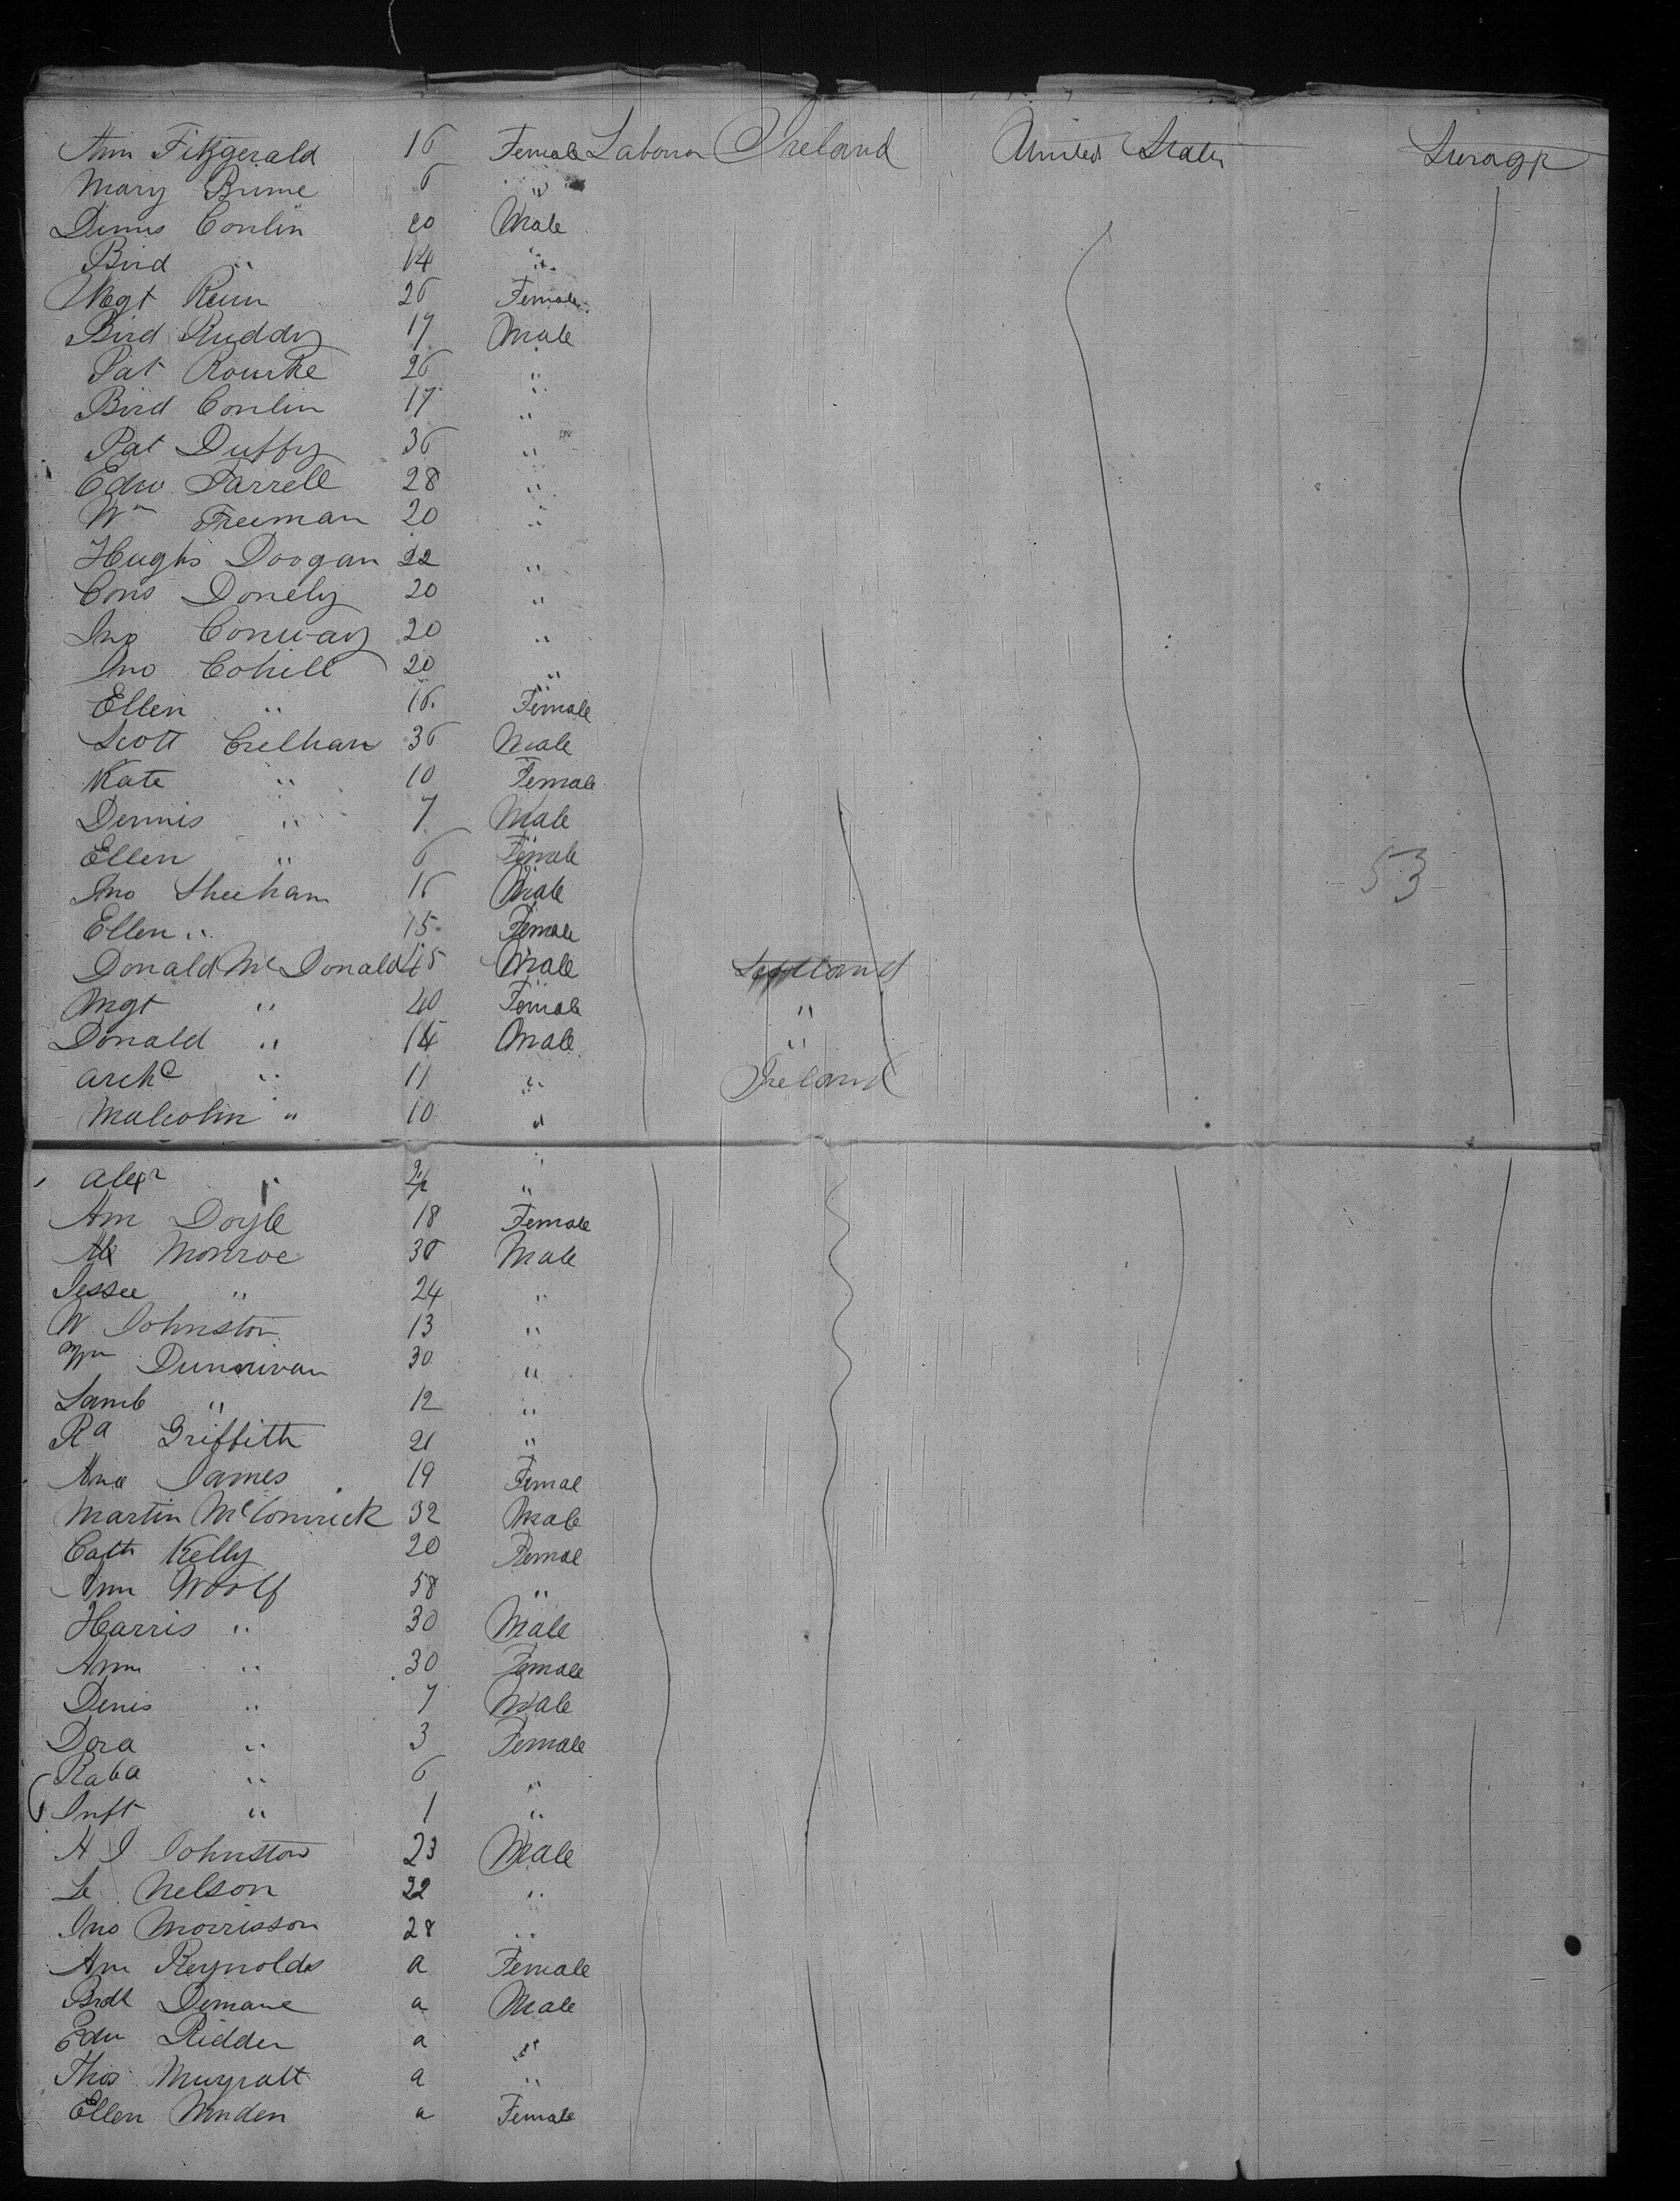 Ann Fitzgerald 16 Female Labourer Ireland United States Steerage
Mary Burne 6 "
Dennis Conlin 20 Male
Bird " 14 "
Megt 26 Female
Bird Ruddy 17 Male
Pat Rourke 26 "
Bird Conlin 17 "
Pat Duffy 36 "
Edw Farrell 28 "
Wm Freeman 20 "
Hughs Doogan 22 "
Cons Donely 20 "
Jno Conway 20 "
Jno Cohill 20 "
Ellen " 16 Female
Scott Crelhan 36 Male
Kate " 10 Female
Dennis " 7 Male
Ellen " 6 Female
53
Jno Sheehan 16 Male
Ellen " 15 Female
Donald McDonald 45 Male Scotland
Mgt " 40 Female "
Donald " 14 Male "
Archd " 11 " Ireland
Malcolm " 10 "
Alexr " "
Ann Doyle 18 Female
Monroe 36 Male
Jessee " 24 "
W Johnston 13 "
Wm Dunnivan 30 "
Lamb " 12 "
Ra Griffith 21 "
James 19 Femal
Martin McCormick 32 Male
Cath Kelly 20 Femal
Ann Woolf 58 "
Harris " 30 Male
Ann " 30 Female
Denis " 7 Male
Dora " 3 Female
Raba " 6 "
Inft " 1 "
A J Johnston 23 Male
Le Nelson 22 "
Jno Morrisson 28 "
Ann Reynolds a Female
Demane a Male
Edw Ridder a "
Thos a "
Ellen Winden a Female